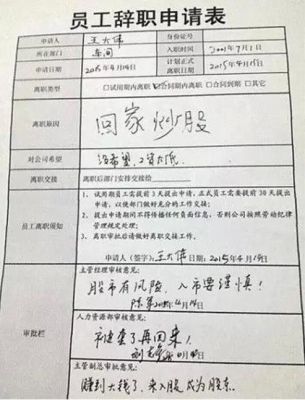 员工辞职申请表
申请人 王大伟 身份证号
所在部门 车间 入职时间 2001年7月1日
申请日期 2015年4月16日 计划正式离职日期 2015年4月15日
离职类型 □试用期内离职 ☑合同期内离职 □合同到期 □其它
离职原因 回家炒股
对公司希望 没希望,工资太低
离职交接 离职后部门安排交接给
员工离职须知
1、试用期员工需提前3天提出申请,正式员工需要提前30天提出申请,以便部门做好充分的工作交接;
2、提出申请期间不得传播任何负面信息,否则公司按照劳动纪律管理规定处理;
3、离职审批后请做好离职交接工作。
申请人(签字):王大伟 申请日期:2015年4月15日
审批栏
主管经理审核意见:
股市有风险,入市要谨慎!
人力资源部审核意见:
被套了再回来!
主管副总审批意见:
赚到大钱了,来入股,成为股东.